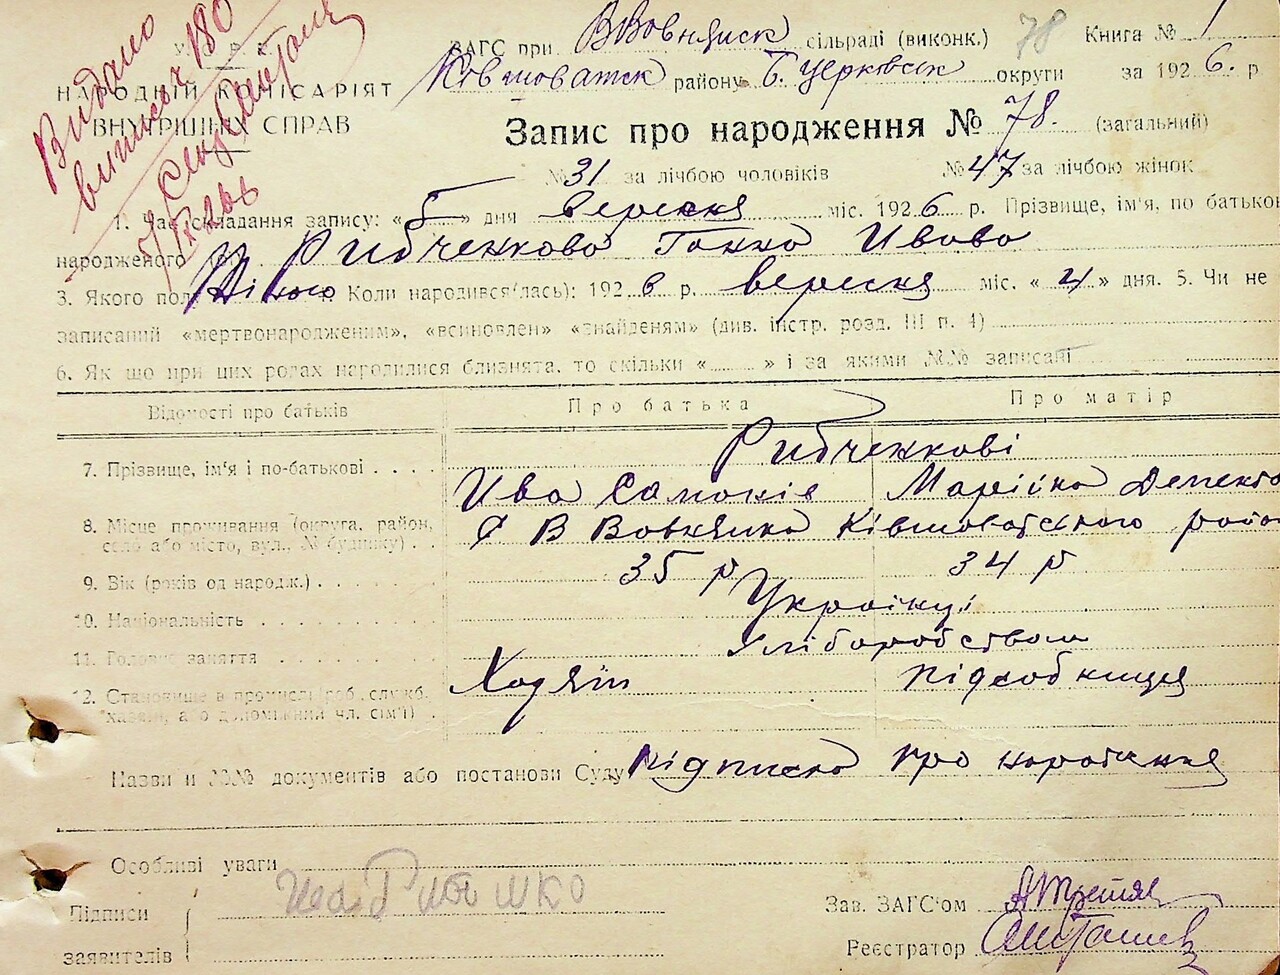 Видано
виписка 180
У. С. Р. Р.
НАРОДНІЙ КОМІСАРІЯТ
ВНУТРІШНІХ СПРАВ
ЗАГС при ВВовнянск сільраді (виконк.) 78 Книга № 1
Ковшоватск району Б. Церковськ округи за 1926. р.
Запис про народження № 78. (загальний)
№ 31 за лічбою чоловіків № 47 за лічбою жінок
1. Час складання запису: «5» дня вересня міс. 1926 р. Прізвище, ім'я, по батькові
народженого Рибченкова Ганна Ивова
3. Якого полу Жіного Коли народився(лась): 1926 р. вересня міс. «4» дня. 5. Чи не
записаний «мертвонародженим», «всиновлен» «знайденям» (див. інстр. розд. III п. 4)
6. Як що при цих родах народилися близнята, то скільки «......» і за якими №№ записані
Відомості про батьків Про батька Про матір
7. Прізвище, ім'я і по-батькові . . . . Рибченкові
Ива Самоків Марійка Дементо
8. Місце проживання (округа, район,
село або місто, вул., № будинку) . . С В Вовнянка Ківшоватського райо
9. Вік (років од народж.) 35 р 34 р
10. Національність Українці
11. Головне заняття Хліборобством
12. Становище в промислі (роб., служб.
хазяїн, або допоміжний чл. сім'ї) . Хазяїн підсобниця
Назви и №№ документів або постанови Суду підписка про народження
Особливі уваги
Підписи
заявителів
Зав. ЗАГС'ом
Реєстратор